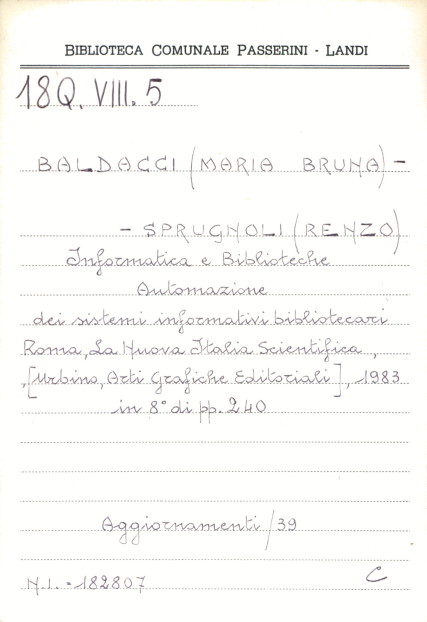 BIBLIOTECA COMUNALE PASSERINI - LANDI
18Q. VIII. 5
BALDACCI (MARIA BRUNA) -
- SPRUGNOLI (RENZO)
Informatica e Biblioteche
Automazione
dei sistemi informativi bibliotecari
Roma, La Nuova Italia Scientifica,
, [Urbino, Arti Grafiche Editoriali], 1983
in 8° di pp. 240
Aggiornamenti / 39
N.I. = 182807
C